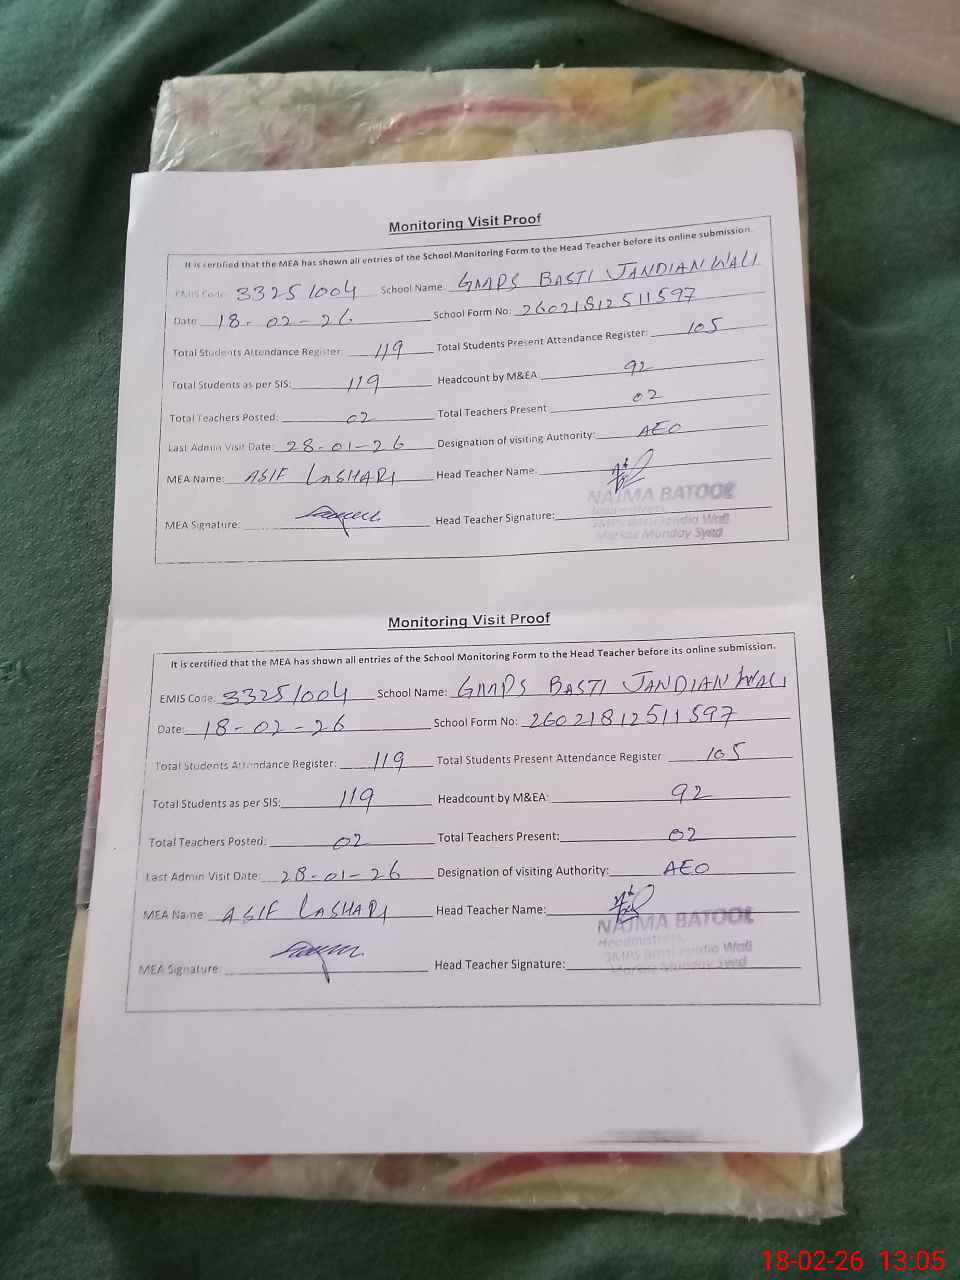 Monitoring Visit Proof
It is certified that the MEA has shown all entries of the School Monitoring Form to the Head Teacher before its online submission.
EMIS Code: 33251004 School Name: GMPS BASTI JANDIAN WALI
Date: 18-02-26 School Form No: 26021812511597
Total Students Attendance Register: 119 Total Students Present Attendance Register: 105
Total Students as per SIS: 119 Headcount by M&EA: 92
Total Teachers Posted: 02 Total Teachers Present: 02
Last Admin Visit Date: 28-01-26 Designation of visiting Authority: AEO
MEA Name: ASIF LASHARI Head Teacher Name:
NAJMA BATOOL
MEA Signature: Head Teacher Signature:
Wali
Markaz Munday Syed
Monitoring Visit Proof
It is certified that the MEA has shown all entries of the School Monitoring Form to the Head Teacher before its online submission.
EMIS Code: 33251004 School Name: GMPS BASTI JANDIAN WALI
Date: 18-02-26 School Form No: 26021812511597
Total Students Attendance Register: 119 Total Students Present Attendance Register 105
Total Students as per SIS: 119 Headcount by M&EA: 92
Total Teachers Posted: 02 Total Teachers Present: 02
Last Admin Visit Date: 28-01-26 Designation of visiting Authority: AEO
MEA Name: ASIF LASHARI Head Teacher Name:
NAJMA BATOOL
Headmistress
Wali
Markaz Munday Syed
MEA Signature: Head Teacher Signature:
18-02-26 13:05